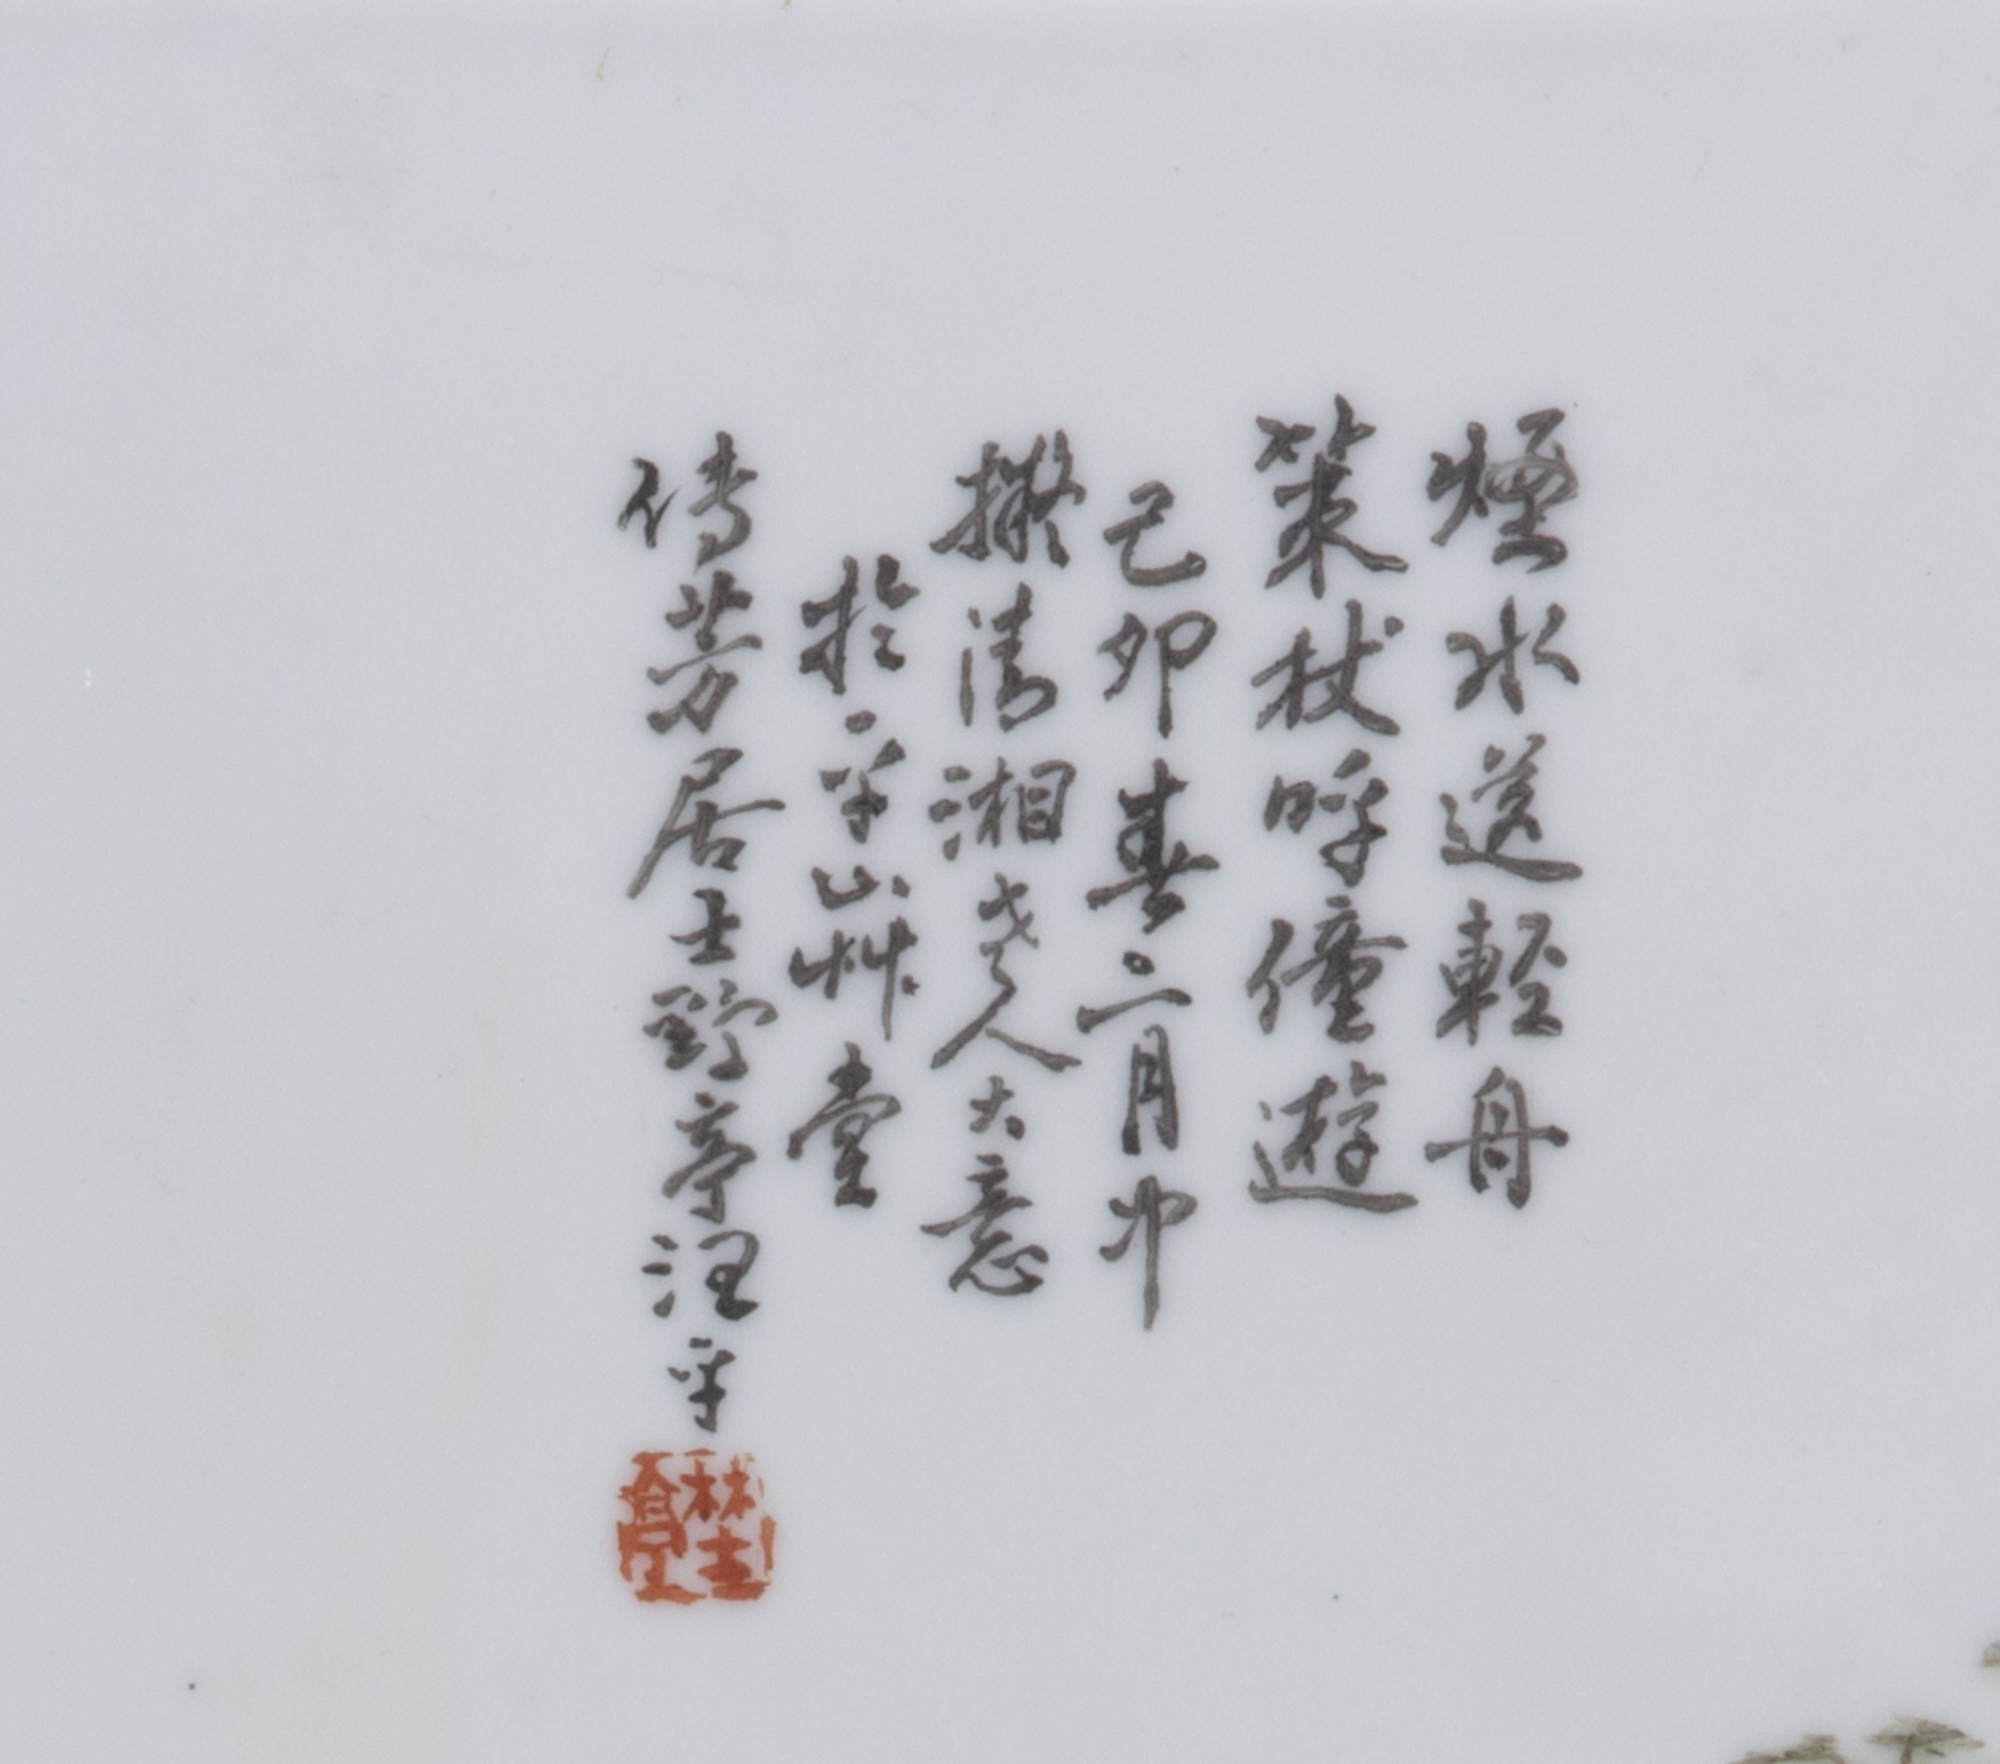 煙水送輕舟
策杖呼僮遊
己卯春二月中
擬清湘老人大意
於平山艸堂
傳芳居士野亭汪平